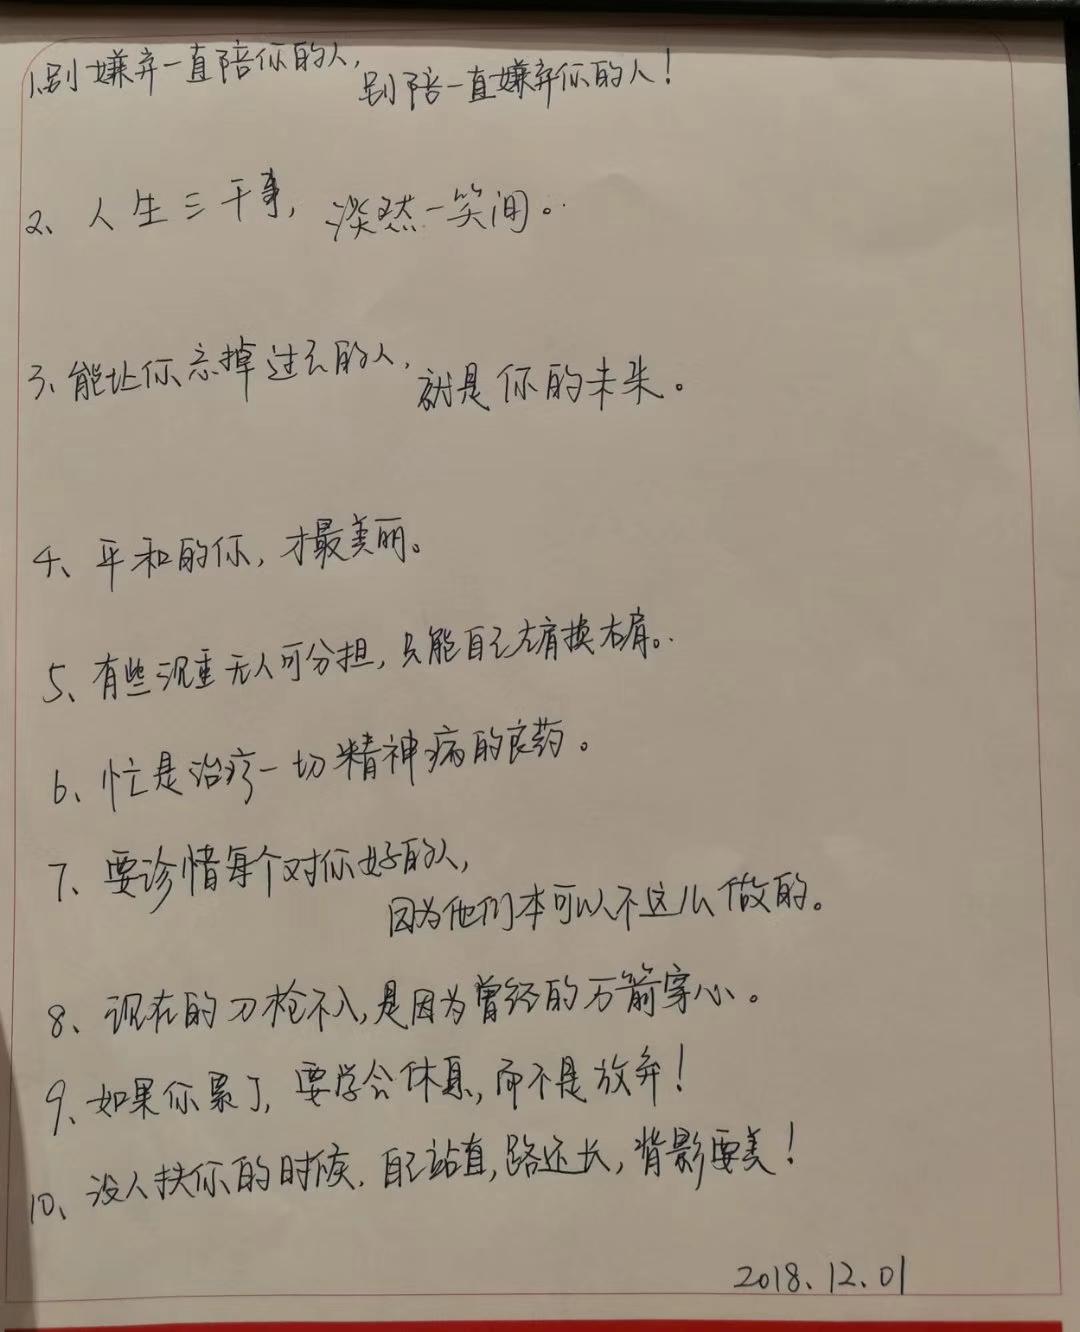 1.别嫌弃一直陪你的人,
别陪一直嫌弃你的人!
2、人生三千事,淡然一笑间。
3、能让你忘掉过去的人,
就是你的未来。
4、平和的你,才最美丽。
5、有些沉重无人可分担,只能自己左肩换右肩。
6、忙是治疗一切精神病的良药。
7、要诊惜每个对你好的人,
因为他们本可以不这么做的。
8、现在的刀枪不入,是因为曾经的万箭穿心。
9、如果你累了,要学会休息,而不是放弃!
10、没人扶你的时候,自己站直,路还长,背影要美!
2018.12.01